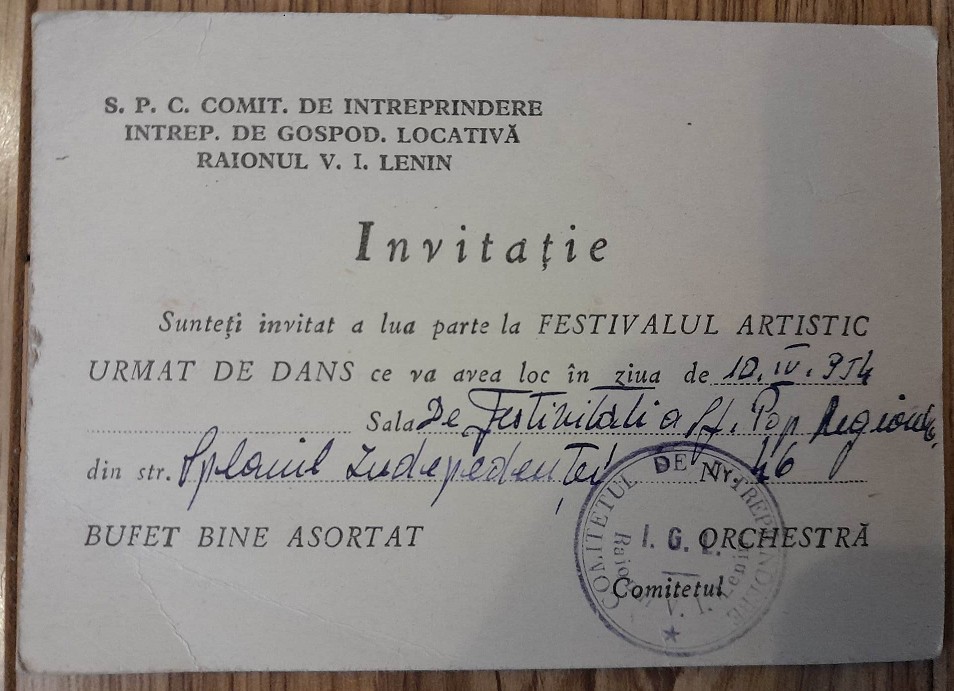 S. P. C. COMIT. DE INTREPRINDERE
INTREP. DE GOSPOD. LOCATIVĂ
RAIONUL V. I. LENIN
Invitație
Sunteți invitat a lua parte la FESTIVALUL ARTISTIC
URMAT DE DANS ce va avea loc în ziua de 10. IV. 954
Sala De Festivitati a Sf. Pop Regional
din str. Splaiul Independenței Nr. 46
BUFET BINE ASORTAT ORCHESTRĂ
Comitetul
COMITETUL DE INTREPRINDERE
I. G. L.
Raionul V. I. Lenin